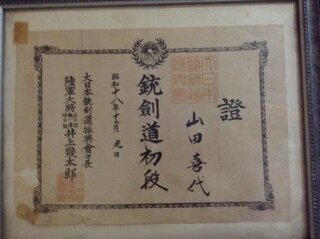 證
山田喜代
銃劍道初段
昭和十八年十二月九日
大日本銃劍道振興會會長
陸軍大將
井上幾太郎